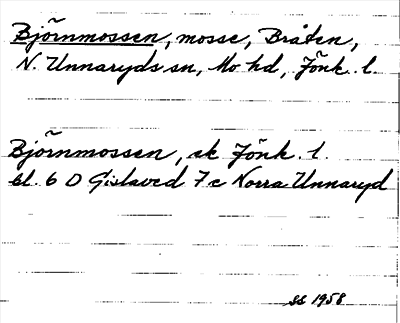 Björnmossen, mosse, Bråten,
N. Unnaryds sn, Mo hd, Jönk. l.
Björnmossen, ek Jönk. l.
bl. 6 D Gislaved 7 c Norra Unnaryd
1958